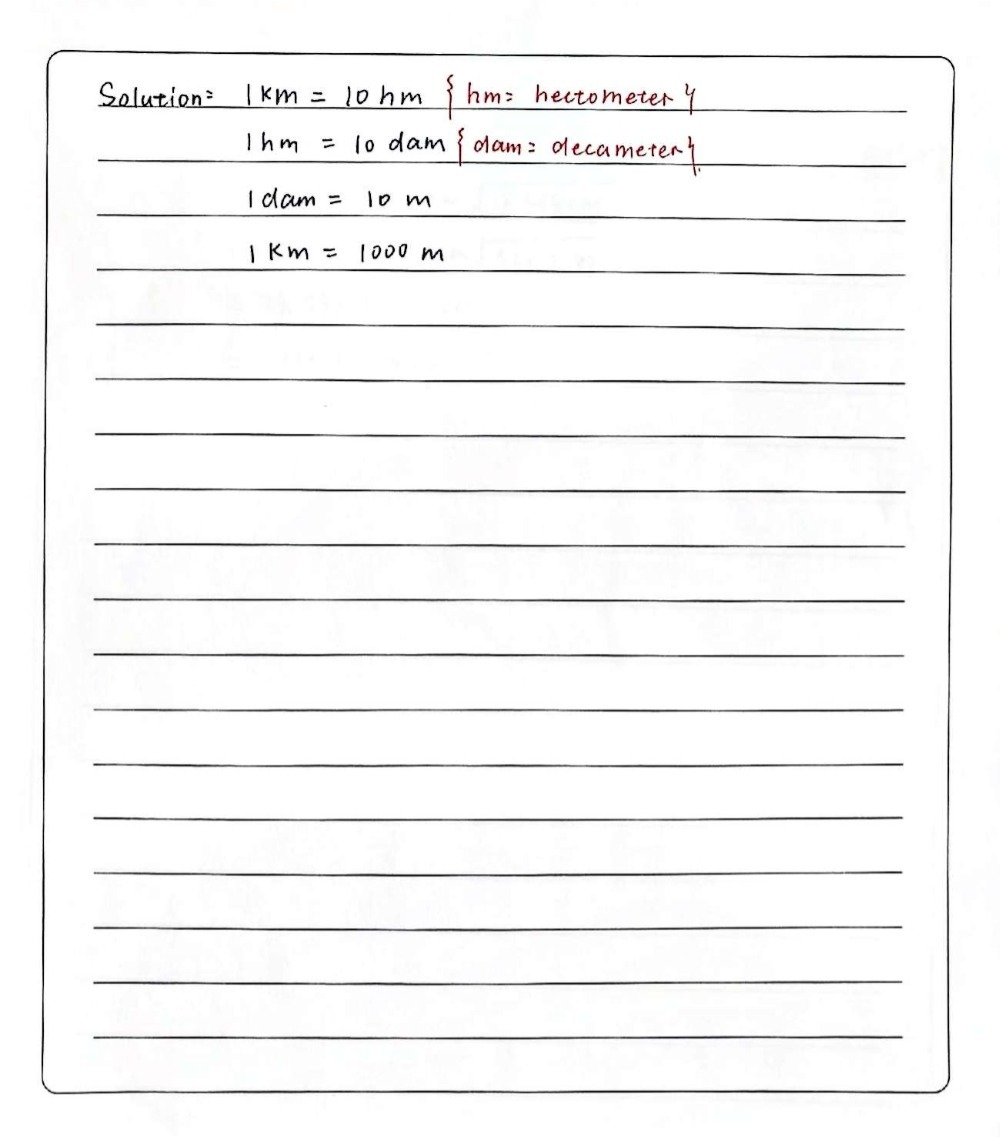 Solution: 1 Km = 10 hm { hm = hectometer }
1 hm = 10 dam { dam = decameter }
1 dam = 10 m
1 Km = 1000 m